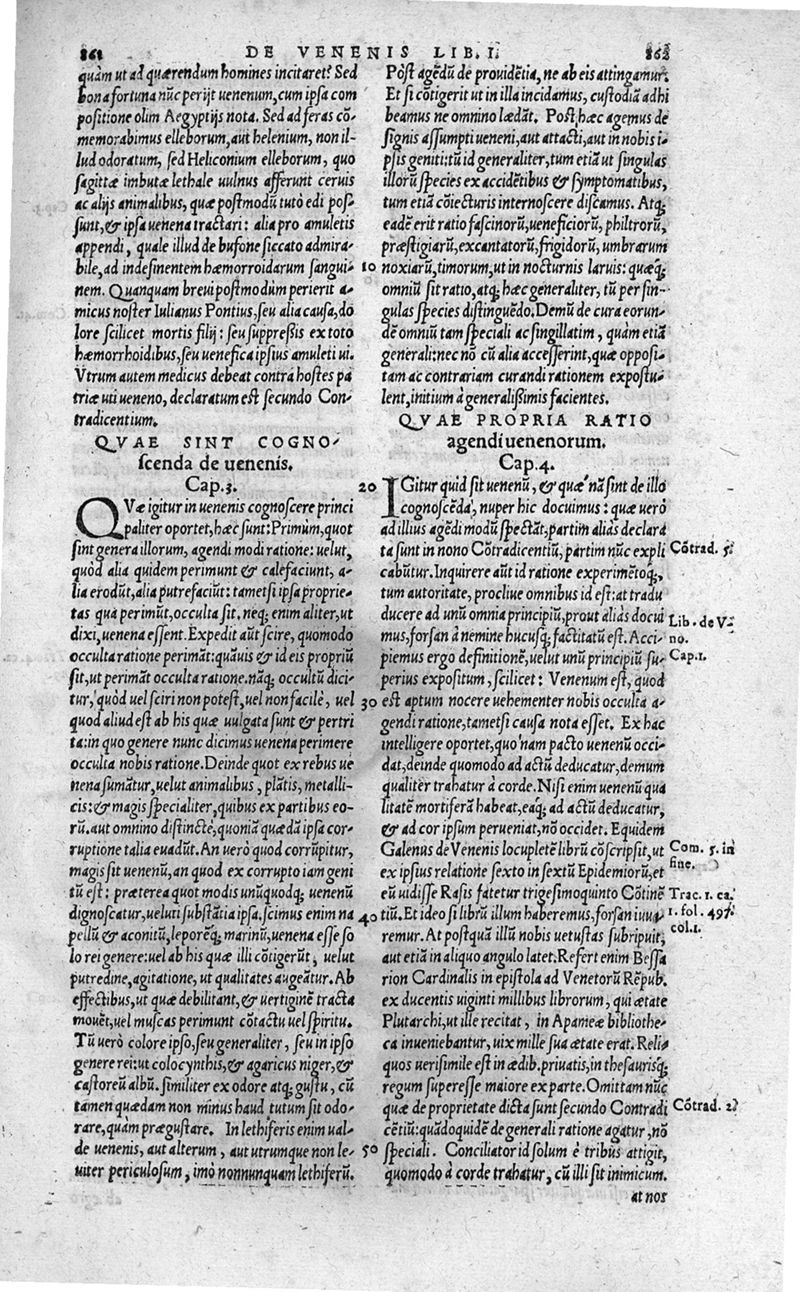 861 DE VENENIS LIB. I. 862
quàm ut ad quærendum homines incitaret? Sed
bona fortuna nũc perijt uenenum, cum ipsa com
positione olim Aegyptijs nota. Sed ad feras cõ-
memorabimus elleborum, aut helenium, non il-
lud odoratum, sed Heliconium elleborum, quo
sagittæ imbutæ lethale uulnus afferunt ceruis
ac alijs animalibus, quæ postmodũ tutò edi pos-
sunt, & ipsa uenena tractari: alia pro amuletis
appendi, quale illud de bufone siccato admira-
bile, ad indesinentem hæmorroidarum sangui-
nem. Quanquam breui postmodùm perierit a-
micus noster Iulianus Pontius, seu alia causa, do
lore scilicet mortis filij: seu suppreßis ex toto
hæmorrhoidibus, seu uenefica ipsius amuleti ui.
Vtrum autem medicus debeat contra hostes pa
triæ uti ueneno, declaratum est secundo Con-
tradicentium.
QVAE SINT COGNO-
scenda de uenenis.
Cap. 3.
QVæ igitur in uenenis cognoscere princi
paliter oportet, hæc sunt: Primùm, quot
sint genera illorum, agendi modi ratione: uelut,
quòd alia quidem perimunt & calefaciunt, a-
lia erodũt, alia putrefaciũt: tametsi ipsa proprie-
tas qua perimũt, occulta sit. neq; enim aliter, ut
dixi, uenena essent. Expedit aũt scire, quomodo
occulta ratione perimãt: quãuis & id eis propriũ
sit, ut perimãt occulta ratione. nãq; occultũ dici-
tur, quòd uel sciri non potest, uel non facilè, uel
quod aliud est ab his quæ uulgata sunt & pertri
ta: in quo genere nunc dicimus uenena perimere
occulta nobis ratione. Deinde quot ex rebus ue
nena sumãtur, uelut animalibus, plãtis, metalli-
cis: & magis specialiter, quibus ex partibus eo-
rũ. aut omnino distinctè, quoniã quædã ipsa cor-
ruptione talia euadũt. An uerò quod corrũpitur,
magis sit uenenũ, an quod ex corrupto iam geni
tũ est: præterea quot modis unũquodq; uenenũ
dignoscatur, ueluti substãtia ipsa. scimus enim na
pellũ & aconitũ, leporẽq; marinũ, uenena esse so
lo rei genere: uel ab his quæ illi cõtigerũt, uelut
putredine, agitatione, ut qualitates augeãtur. Ab
effectibus, ut quæ debilitant, & uertiginẽ tracta
mouẽt, uel muscas perimunt cõtactu uel spiritu.
Tũ uerò colore ipso, seu generaliter, seu in ipso
genere rei: ut colocynthis, & agaricus niger, &
castoreũ albũ. similiter ex odore atq; gustu, cũ
tamen quædam non minus haud tutum sit odo-
rare, quàm prægustare. In lethiferis enim ual-
de uenenis, aut alterum, aut utrumque non le-
uiter periculosum, imò nonnunquam lethiferũ.
10
20
30
40
50
Pòst agẽdũ de prouidẽtia, ne ab eis attingamur.
Et si cõtigerit ut in illa incidamus, custodiã adhi
beamus ne omnino lædãt. Post hæc agemus de
signis assumpti ueneni, aut attacti, aut in nobis i-
psis geniti: tũ id generaliter, tum etiã ut singulas
illorũ species ex accidẽtibus & symptomatibus,
tum etiã cõiecturis internoscere discamus. Atq;
eadẽ erit ratio fascinorũ, ueneficiorũ, philtrorũ,
præstigiarũ, excantatorũ, frigidorũ, umbrarum
noxiarũ, timorum, ut in nocturnis laruis: quæq;
omniũ sit ratio, atq; hæc generaliter, tũ per sin-
gulas species distinguẽdo. Demũ de cura eorun-
dẽ omniũ tam speciali ac singillatim, quàm etiã
generali: nec nõ cũ alia accesserint, quæ opposi-
tam ac contrariam curandi rationem expostu-
lent, initium à generalißimis facientes.
QVAE PROPRIA RATIO
agendi uenenorum.
Cap. 4.
IGitur quid sit uenenũ, & quæ nã sint de illo
cognoscẽda, nuper hic docuimus: quæ uerò
ad illius agẽdi modũ spectãt, partim aliàs declara
ta sunt in nono Cõtradicentiũ, partim nũc expli
cabũtur. Inquirere aũt id ratione experimẽtoq́;,
tum autoritate, procliue omnibus id est: at tradu
ducere ad unũ omnia principiũ, prout aliàs docui
mus, forsan à nemine hucusq; factitatũ est. Acci-
piemus ergo definitionẽ, uelut unũ principiũ su-
perius expositum, scilicet: Venenum est, quod
est aptum nocere uehementer nobis occulta a-
gendi ratione, tametsi causa nota esset. Ex hac
intelligere oportet, quo nam pacto uenenũ occi-
dat, deinde quomodo ad actũ deducatur, demum
qualiter trahatur à corde. Nisi enim uenenũ qua
litatẽ mortiferã habeat, eaq; ad actũ deducatur,
& ad cor ipsum perueniat, nõ occidet. Equidem
Galenus de Venenis locupletẽ librũ cõscripsit, ut
ex ipsius relatione sexto in sextũ Epidemiorũ, et
eũ uidisse Rasis fatetur trigesimoquinto Cõtinẽ
tiũ. Et ideo si librũ illum haberemus, forsan iuua-
remur. At postquã illũ nobis uetustas subripuit,
aut etiã in aliquo angulo latet. Refert enim Bessa
rion Cardinalis in epistola ad Venetorũ Rẽpub.
ex ducentis uiginti millibus librorum, qui ætate
Plutarchi, ut ille recitat, in Apameæ bibliothe-
ca inueniebantur, uix mille sua ætate erat. Reli-
quos uerisimile est in ædib. priuatis, in thesaurisq́;
regum superesse maiore ex parte. Omittam nũc
quæ de proprietate dicta sunt secundo Contradi
cẽtiũ: quãdoquidẽ de generali ratione agatur, nõ
speciali. Conciliator id solum è tribus attigit,
quomodo à corde trahatur, cũ illi sit inimicum.
at nos
Cõtrad. 5.
Lib. de Ve-
no.
Cap. 1.
Com. 5. in
fine.
Trac. 1. ca.
1. fol. 497.
col. 1.
Cõtrad. 2.